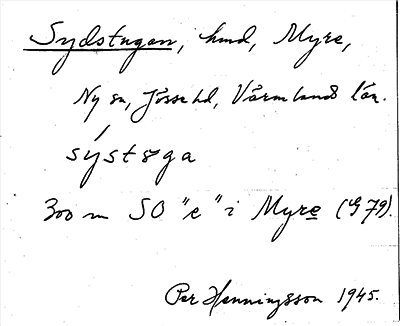 Sydstugan, hmd, Myre,
Ny sn, Jösse hd, Värmlands län.
sýstøga
300 m SO "e" i Myre (G 79).
Per Henningsson 1945.